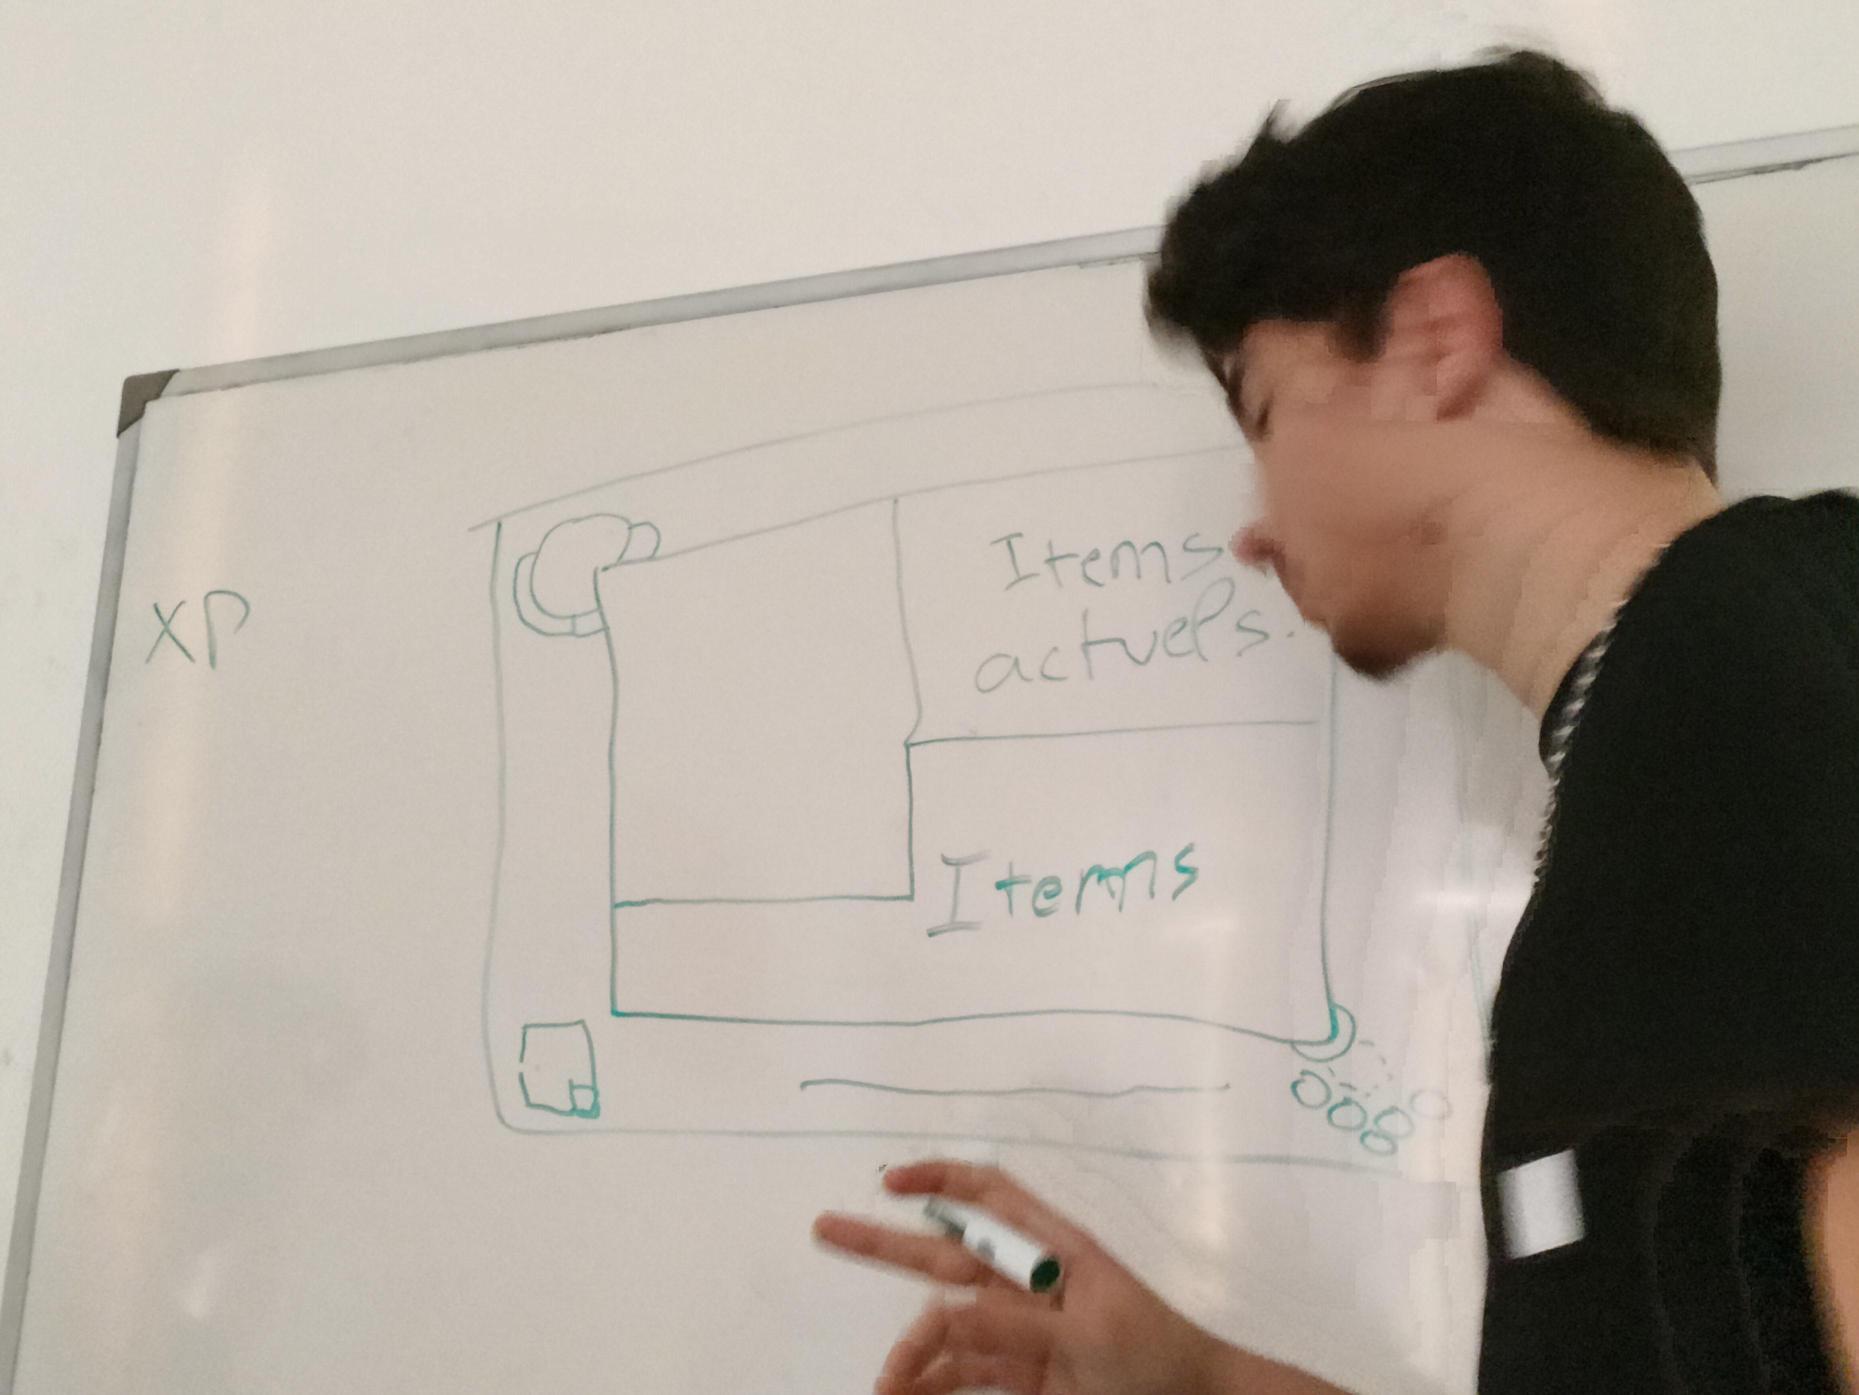 XP
Items
actuels.
Items